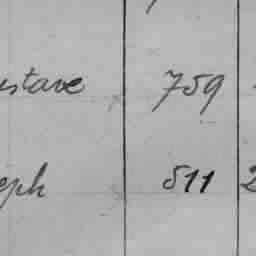 ustave 759
eph 511 2